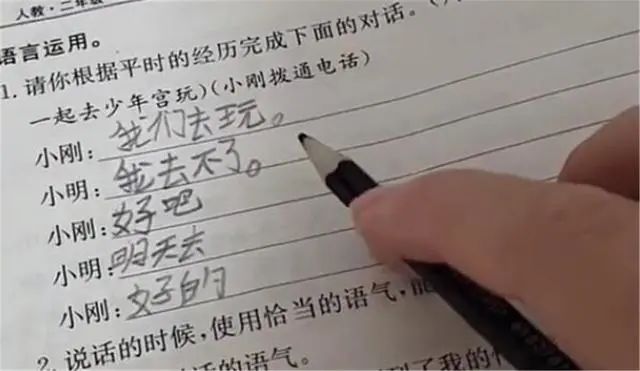 人教·二年级
语言运用。
1.请你根据平时的经历完成下面的对话。
一起去少年宫玩)(小刚拨通电话)
小刚:我们去玩。
小明:我去不了。
小刚:好吧
小明:明天去
小刚:好的
2.说话的时候,使用恰当的语气,能
话的语气。
到了我的